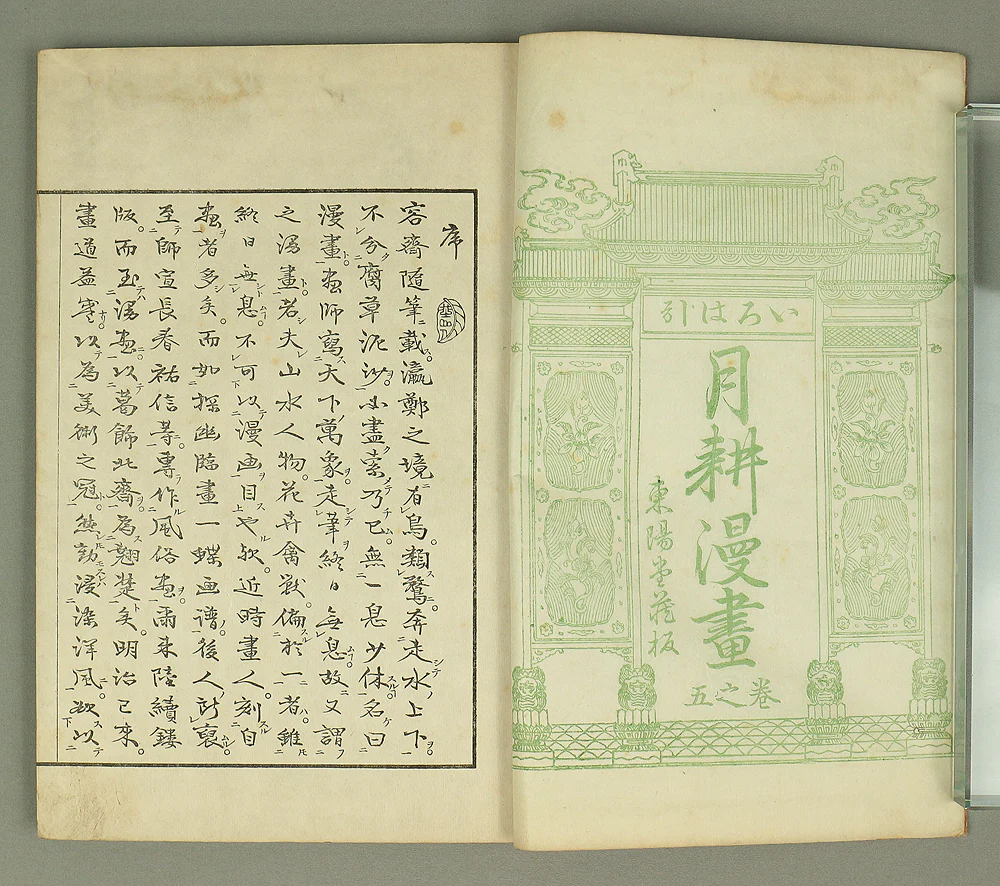 いろは引
月耕漫畫
東陽堂藏板
卷之五
序
容齋隨筆載瀛鄭之境有鳥類鶩奔走水上下
不分腐草泥沙必盡索乃已無一息少休名曰
漫畫畫師寫天下萬象走筆終日無息故又謂
之漫畫若夫山水人物花卉禽獣偏於一者雖
終日無息不可以漫画目也歟近時畫人刻自
畫者多矣而如探幽臨畫一蝶画譜後人所裒
至師宣長春祐信等專作風俗畫爾来陸續鏤
版而至漫畫以葛飾北齋為翹楚矣明治已来
畫道益以為美術之冠然浸染洋風欲以